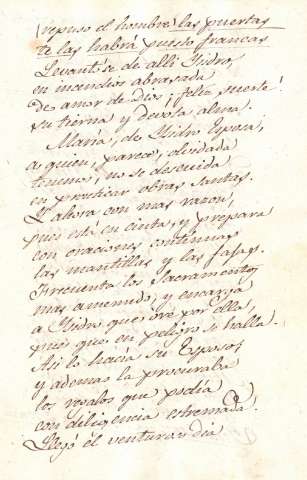 (repuso el hombre) las puertas
te las habrá puesto francas
Levantóse de alli Ysidro,
en incendios abrasada
de amor de Dios, ¡feliz suerte!
su tierna y devota alma.
Maria, de Ysidro Esposa,
a quien, parece, olvidada
tenemos, no se descuida
en practicar obras santas.
Y ahora con mas razon,
pues está en cinta, y prepara
con oraciones continuas
las mantillas y las fajas.
Frecuenta los Sacramentos
mas amenudo, y encarga
a Ysidro que oré por ella,
pues que en peligro se halla.
Asi lo hacia su Esposo;
y ademas la procuraba
los regalos que podia
con diligencia estremada.
Llegó el venturoso dia